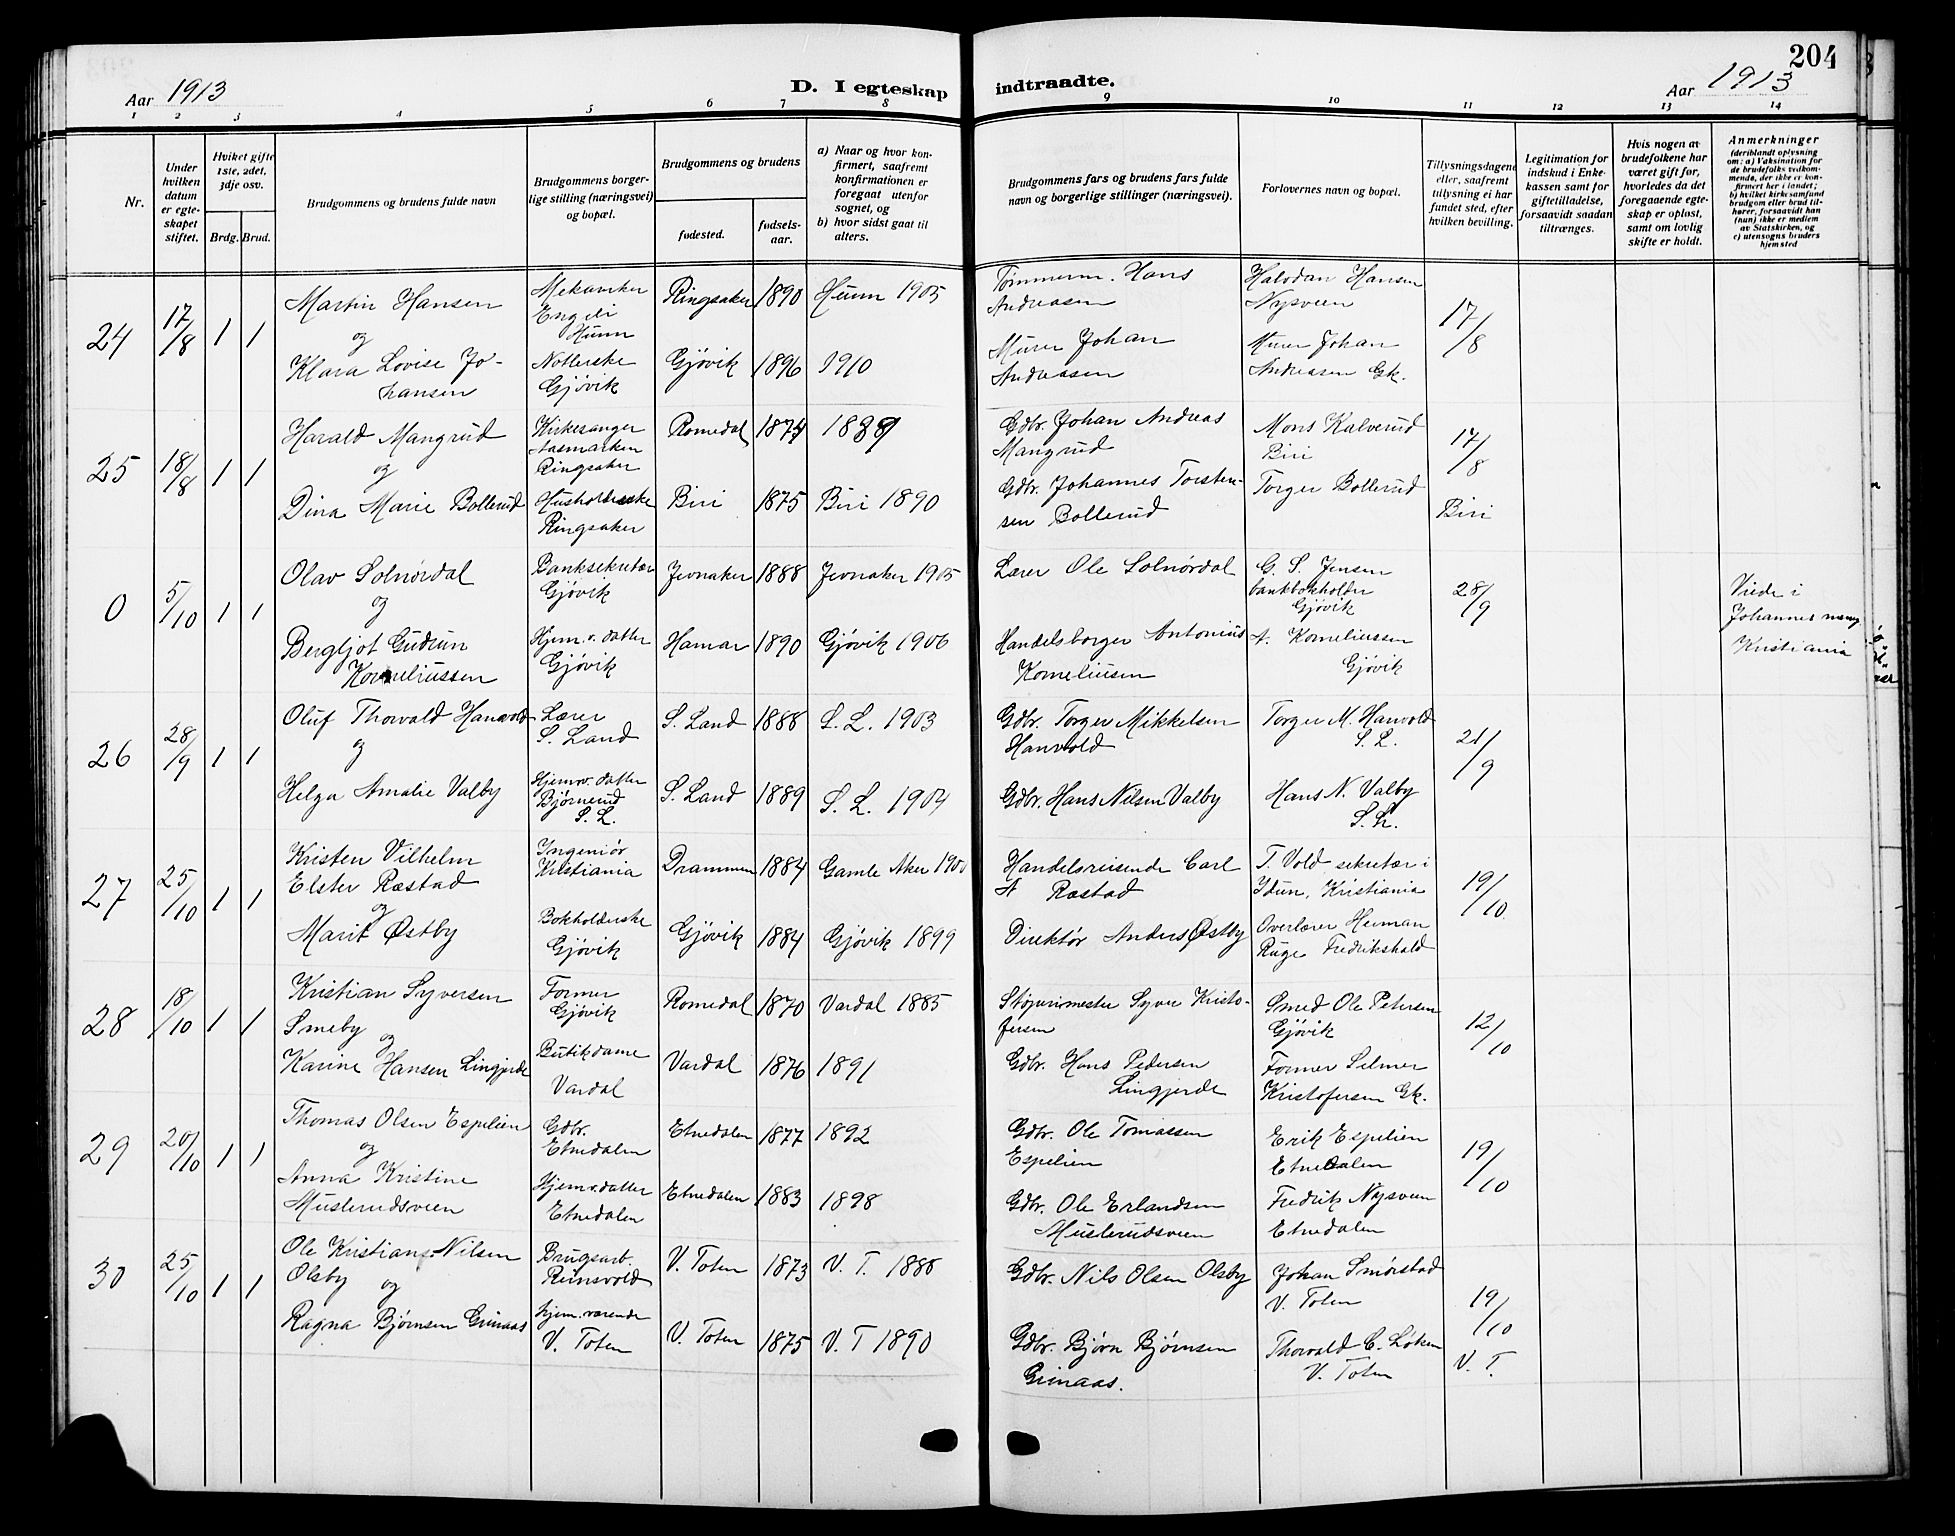 204
Aar 1913
D. I egteskap indtraadte.
Aar 1913
1 2 3 4 5 6 7 8 9 10 11 12 13 14
Nr.
Under hvilken datum er egteskapet stiftet.
Hviket gifte 1ste, 2det, 3dje osv.
Brdg. Brud.
Brudgommens og brudens fulde navn
Brudgommens borgerlige stilling (næringsvei) og bopæl.
Brudgommens og brudens
fødested.
fødselsaar.
a) Naar og hvor konfirmert, saafremt konfirmationen er foregaat utenfor sognet, og
b) hvor sidst gaat til alters.
Brudgommens fars og brudens fars fulde navn og borgerlige stillinger (næringsvei).
Forlovernes navn og bopæl.
Tillysningsdagene eller, saafremt tillysning ei har fundet sted, efter hvilken bevilling.
Legitimation for indskud i Enkekassen samt for giftetilladelse, forsaavidt saadan tiltrænges.
Hvis nogen av brudefolkene har været gift før, hvorledes da det foregaaende egteskap er opløst, samt om lovlig skifte er holdt.
Anmerkninger (deriblandt oplysning om: a) Vaksination for de brudefolks vedkommende, der ikke er konfirmert her i landet; b) hvilket kirkesamfund brudgom eller brud tilhører, forsaavidt han (hun) ikke er medlem av Statskirken, og c) utensogns bruders hjemsted
24 17/8 1 1
Martin Hansen
og
Klara Lovise Jo-
hansen
Mekaniker
Hunn
Gjøvik
Ringsaker 1890 Hunn 1905
Gjøvik 1896 1910
Tømmerm. Hans
Andreasen
Murer Johan
Andreasen
Halvdan Hansen
Nysveen
Murer Johan
Andreasen Gk.
17/8
25 18/8 1 1
Harald Mangrud
og
Dina Marie Bollerud
Kirkesanger
Aasmarken
Ringsaker
Husholderske
Ringsaker
Romedal 1874 1889
Biri 1875 Biri 1890
Gdbr. Johan Andreas
Mangrud
Gdbr. Johannes Torsten-
sen Bollerud
Mons Kalverud
Biri
Torger Bollerud
17/8
Biri
0 5/10 1 1
Olav Solnørdal
og
Bergljot Gudrun
Korneliussen
Banksekretær
Gjøvik
Hjem.v. datter
Gjøvik
Jevnaker 1888 Jevnaker 1905
Hamar 1890 Gjøvik 1906
Lærer Ole Solnørdal
Handelsborger Antonius
Korneliusen
G. S. Jensen
bankbokholder
Gjøvik
A. Korneliussen
Gjøvik
28/9
Viede i
Johannes menig
Kristiania
26 28/9 1 1
Oluf Thorvald Hanvold
og
Helga Amalie Valby
Lærer
S. Land
Hjemv. datter
Bjørnerud
S. L.
S. Land 1888 S. L. 1903
S. Land 1889 S. L. 1904
Gdbr. Torger Mikkelsen
Hanvold
Gdbr. Hans Nilsen Valby
Torger M. Hanvold
S. L.
Hans N. Valby
S. L.
21/9
27 25/10 1 1
Kristen Vilhelm
Elster Ræstad
og
Marit Østby
Ingeniør
Kristiania
Bokholderske
Gjøvik
Drammen 1884 Gamle Aker 1900
Gjøvik 1884 Gjøvik 1899
Handelsreisende Carl
A Ræstad
Direktør Anders Østby
T. Vold sekretær i
Idun, Kristiania
Overlærer Herman
Ruge Fredrikshald
19/10
28 18/10 1 1
Kristian Syversen
Smeby
og
Karine Hansen Lingjerde
Former
Gjøvik
Butikdame
Vardal
Romedal 1870 Vardal 1885
Vardal 1876 1891
Støperimester Syver Kristo-
fersen
Gdbr. Hans Pedersen
Lingjerde
Smed Ole Petersen
Gjøvik
Former Selmer
Kristofersen Gk.
12/10
29 20/10 1 1
Thomas Olsen Espelien
og
Anna Kristine
Muslerudsveen
Gdbr.
Etnedalen
Hjemv. datter
Etnedalen
Etnedalen 1877 1892
Etnedalen 1883 1898
Gdbr. Ole Tomassen
Espelien
Gdbr. Ole Erlandsen
Muslerudsveen
Erik Espelien
Etnedalen
Fredrik Nysveen
Etnedalen
19/10
30 25/10 1 1
Ole Kristians. Nilsen
Olsby
og
Ragna Bjørnsen Grinaas
Brugsarb.
Reinsvold
hjem. værende
V. Toten
V. Toten 1873 V. T. 1888
V. Toten 1875 V. T 1890
Gdbr. Nils Olsen Olsby
Gdbr. Bjørn Bjørnsen
Grinaas.
Johan Smørstad
V. Toten
Thorvald C. Løken
V. Toten
19/10
V. T.